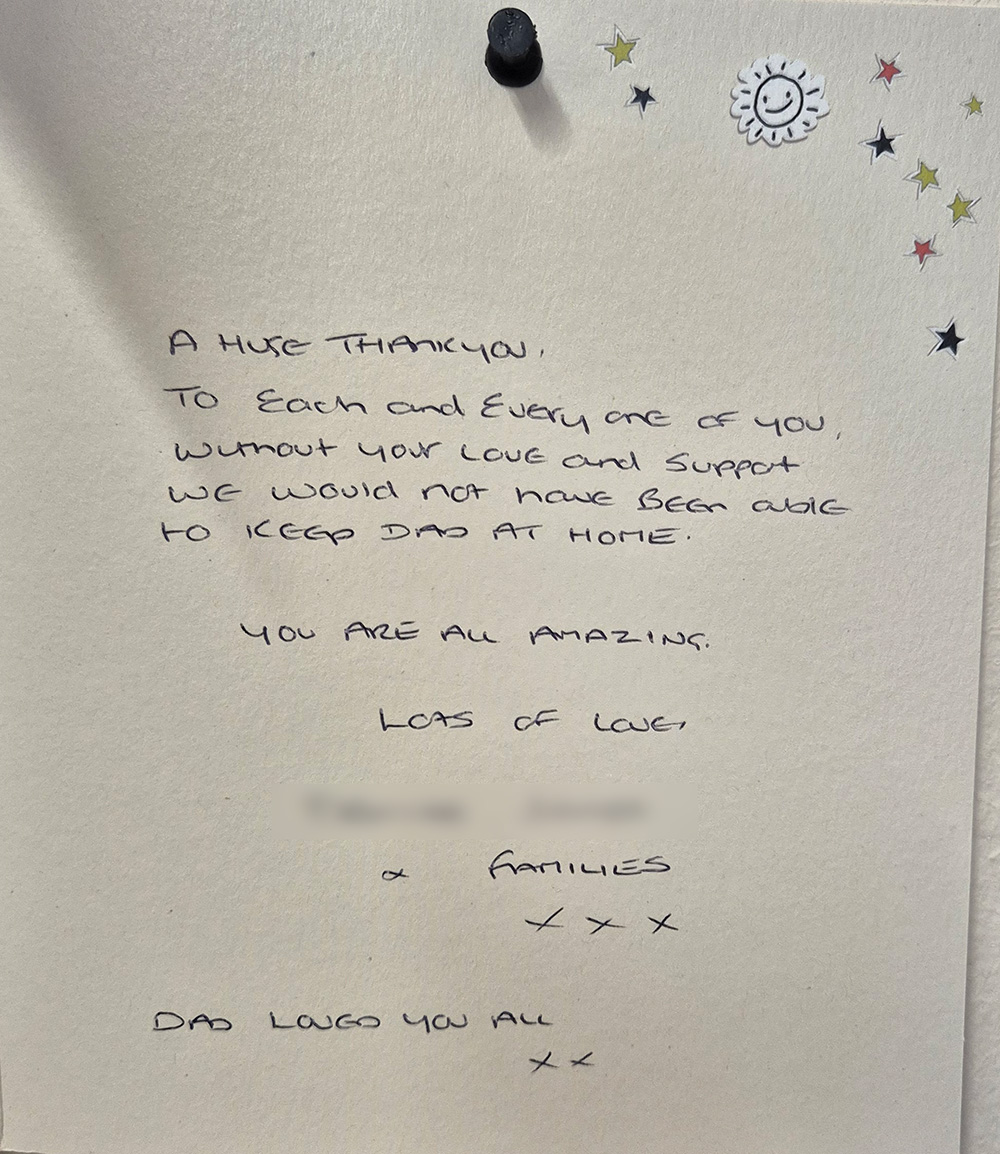 A HUGE THANKYOU,
TO Each and Every one of you,
without your LOVE and Support
WE would not have BEEN able
to KEEP DAD AT HOME.
YOU ARE ALL AMAZING.
LOTS OF LOVE,
& FAMILIES
X X X
DAD LOVED YOU ALL
X X